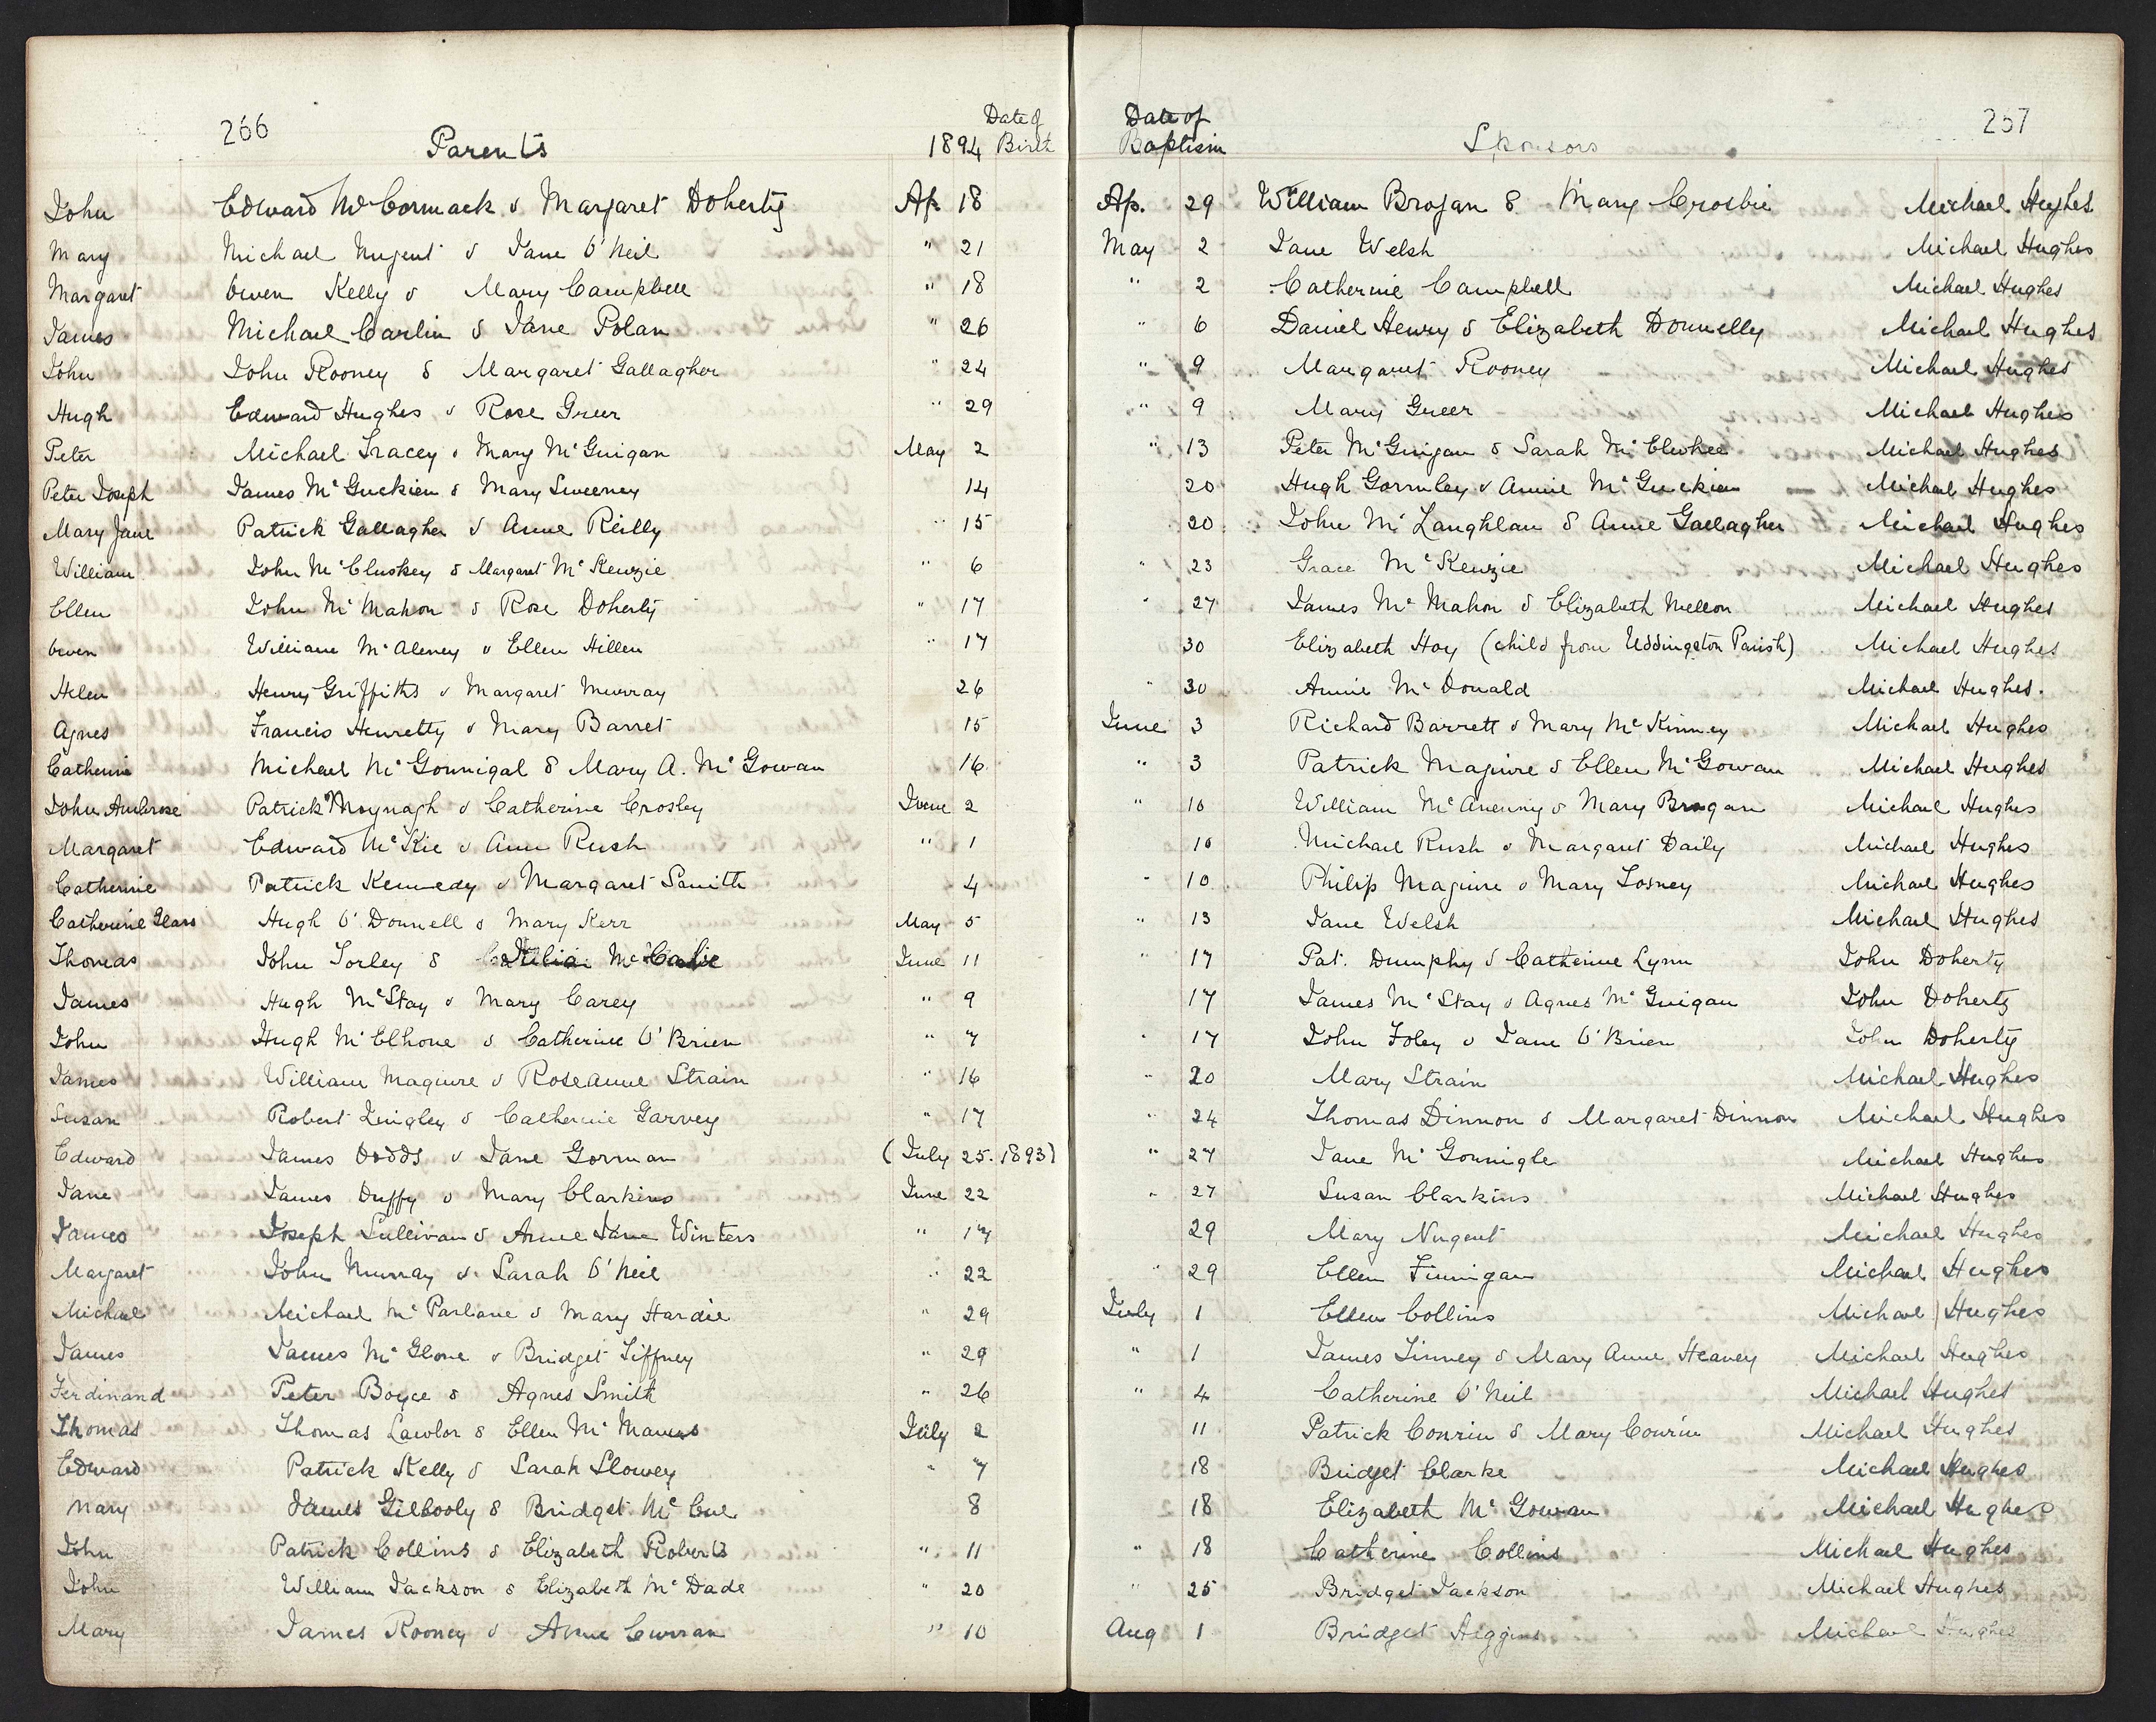 266
Parents 1894 Date of Birth
John Edward McCormack & Margaret Doherty Ap 18
Mary Michael Nugent & Jane O'Neil " 21
Margaret Owen Kelly & Mary Campbell " 18
James Michael Carlin & Jane Polan " 26
John John Rooney & Margaret Gallagher " 24
Hugh Edward Hughes & Rose Greer " 29
Peter Michael Tracey & Mary McGuigan May 2
Peter Joseph James McGuckien & Mary Sweeney 14
Mary Jane Patrick Gallagher & Anne Reilly " 15
William John McCluskey & Margaret McKenzie " 6
Ellen John McMahon & Rose Doherty " 17
Owen William McAleney & Ellen Hillen " 17
Helen Henry Griffiths & Margaret Murray 26
Agnes Francis Henretty & Mary Barret 15
Catherine Michael McGonnigal & Mary A. McGowan 16
John Ambrose Patrick Moynagh & Catherine Crosby June 2
Margaret Edward McKie & Ann Rush " 1
Catherine Patrick Kennedy & Margaret Smith 4
Catherine Hugh O'Donnell & Mary Kerr May 5
Thomas John Torley & June 11
James Hugh McStay & Mary Carey " 9
John Hugh McElhone & Catherine O'Brien " 7
James William Maguire & Roseanne Strain " 16
Susan Robert Quigley & Catherine Garvey " 17
Edward James Dodds & Jane Gorman (July 25. 1893)
Jane James Duffy & Mary Clarkins June 22
James Joseph Sullivan & Anne Jane Winters " 17
Margaret John Murray & Sarah O'Neil " 22
Michael Michael McParlane & Mary Hardie " 29
James James McGlone & Bridget Tiffney " 29
Ferdinand Peter Boyce & Agnes Smith " 26
Thomas Thomas Lawlor & Ellen McManus July 2
Edward Patrick Kelly & Sarah Slowey " 7
Mary James Gilhooly & Bridget McCue 8
John Patrick Collins & Elizabeth Roberts " 11
John William Jackson & Elizabeth McDade " 20
Mary James Rooney & Anne Curran " 10
267
Date of Baptism Sponsors
Ap. 29 William Brogan & Mary Crosbie Michael Hughes
May 2 Jane Welsh Michael Hughes
" 2 Catherine Campbell Michael Hughes
" 6 Daniel Henry & Elizabeth Donnelly Michael Hughes
" 9 Margaret Rooney Michael Hughes
" 9 Mary Greer Michael Hughes
" 13 Peter McGuigan & Sarah Michael Hughes
20 Hugh Gormley & Annie McGuckian Michael Hughes
20 John McLaughlan & Anne Gallagher Michael Hughes
" 23 Grace McKenzie Michael Hughes
" 27 James McMahon & Elizabeth Mellon Michael Hughes
30 Elizabeth Hoy (child from Uddingston Parish) Michael Hughes
" 30 Annie McDonald Michael Hughes.
June 3 Richard Barrett & Mary McKinney Michael Hughes
" 3 Patrick Maguire & Ellen McGowan Michael Hughes
" 10 William McAnenny & Mary Brogan Michael Hughes
10 Michael Rush & Margaret Daily Michael Hughes
" 10 Philip Maguire & Mary Losney Michael Hughes
" 13 Jane Welsh Michael Hughes
" 17 Pat. Dumphy & Catherine Lynn John Doherty
17 James McStay & Agnes McGuigan John Doherty
" 17 John Foley & Jane O'Brien John Doherty
" 20 Mary Strain Michael Hughes
" 24 Thomas Dinnon & Margaret Dinnon Michael Hughes
" 27 Jane McGonnigle Michael Hughes
" 27 Susan Clarkins Michael Hughes
29 Mary Nugent Michael Hughes
" 29 Ellen Finnigan Michael Hughes
July 1 Ellen Collins Michael Hughes
" 1 James Tinney & Mary Anne Heaney Michael Hughes
" 4 Catherine O'Neil Michael Hughes
11 Patrick Conrin & Mary Conrin Michael Hughes
18 Bridget Clarke Michael Hughes
18 Elizabeth McGowan Michael Hughes
" 18 Catherine Collins Michael Hughes
" 25 Bridget Jackson Michael Hughes
Aug 1 Bridget Higgins Michael Hughes